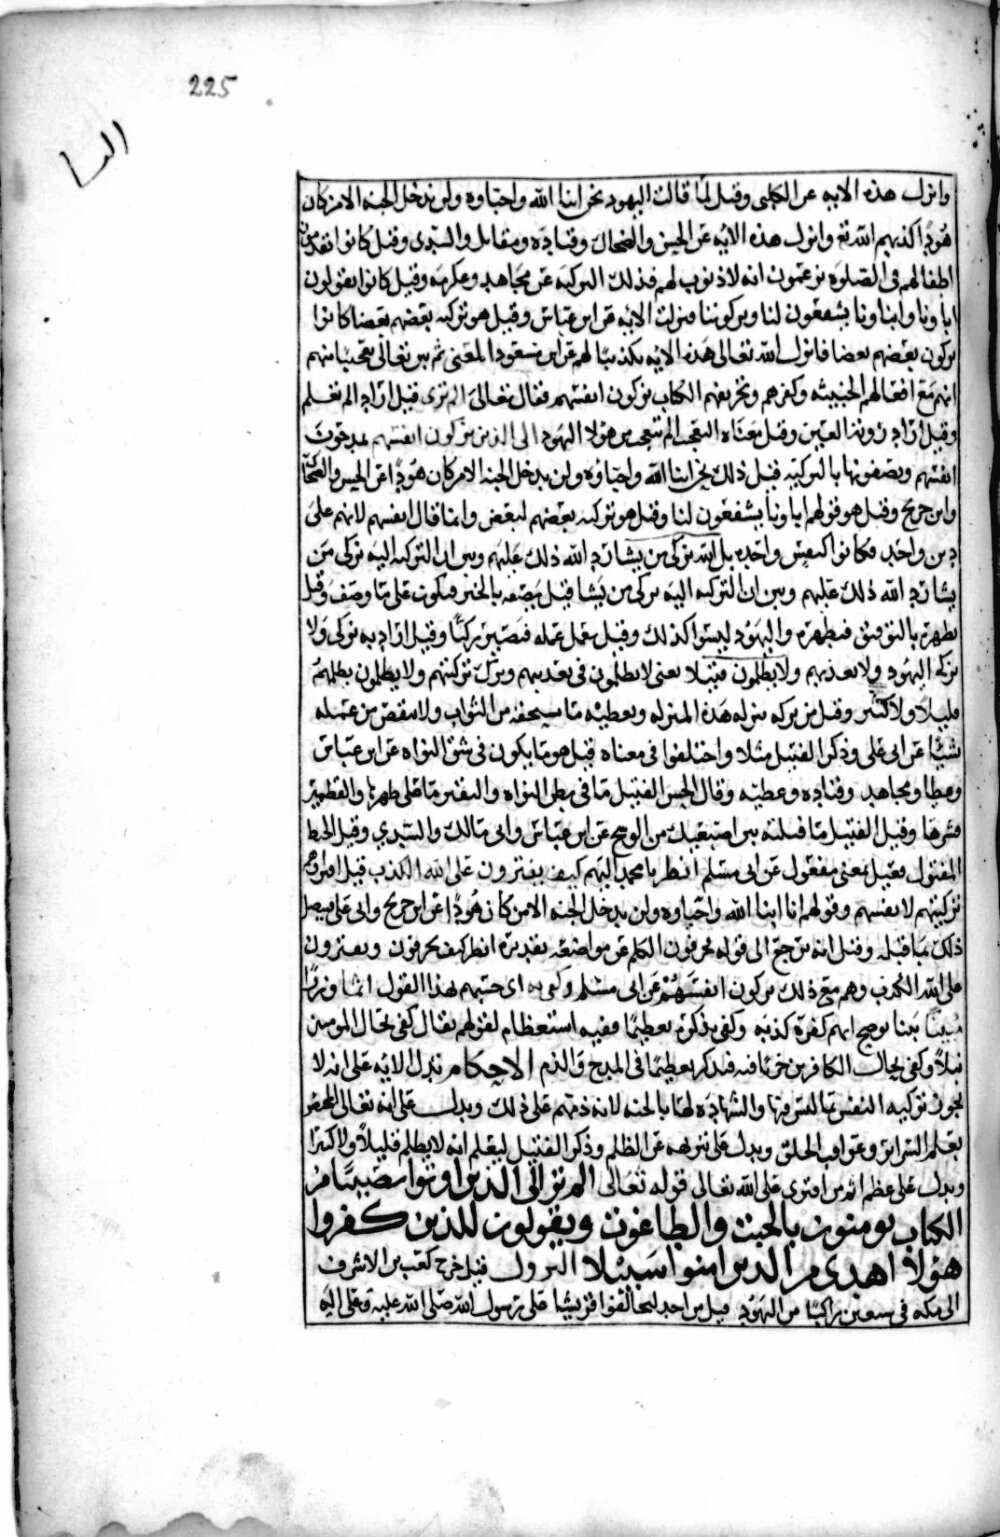 225
النسا
وانزل هذه الايه عن الكلبى وقيل لما قالت اليهود نحن ابنا الله واحباوه ولن يدخل الجنه الا من كان
هودا اكذبهم الله تع وانزل هذه الايه عن الحسن والضحاك وقتاده ومقاتل والسدى وقيل كانوا يقدمون
اطفالهم فى الصلوه يزعمون انه لا ذنوب لهم فذلك التزكيه عن مجاهد وعكرمه وقيل كانوا يقولون
اباونا وابناونا يشفعون لنا ويزكوننا فنزلت الايه عن ابن عباس وقيل هو تزكيه بعضهم بعضا كانوا
يزكون بعضهم بعضا فانزل الله تعالى هذه الايه تكذيبا لهم عن ابن مسعود المعنى ثم بين تعالى تعجيبا منهم
انهم مع افعالهم الخبيثه وكفرهم وتحريفهم الكتاب يزكون انفسهم فقال تعالى الم ترى قيل اراد الم تعلم
وقيل اراد رويه العين وقيل معناه التعجب الم تتعجب من هولا اليهود الى الذين يزكون انفسهم يمدحون
انفسهم ويصفونها بالتزكيه قيل ذلك نحن ابنا الله واحباوه ولن يدخل الجنه الا من كان هودا عن الحسن والضحاك
وابن جريج وقيل هو قولهم اباونا يشفعون لنا وقيل هو تزكيه بعضهم لبعض وانما قال انفسهم لانهم على
دين واحد فكانوا كنفس واحده بل الله يزكى من يشا رد الله ذلك عليهم وبين ان التزكيه اليه يزكى من
يشا رد الله ذلك عليهم وبين ان التزكيه اليه يزكى من يشا قيل يصفه بالخير فيكون على ما وصف وقيل
يطهره بالتوفيق فيطهره واليهود ليسوا كذلك وقيل يقبل عمله فيصير زكيا وقيل اراد به يزكى ولا
يزكى اليهود ولا يعذبهم ولا يظلمون فتيلا يعنى لا يظلمون فى تعذيبهم وترك تزكيتهم ولا يظلمون بظلمهم
قليلا ولا كثيرا وقيل من يزكه ينزله هذه المنزله ويعطيه ما يستحقه من الثواب ولا ينقص من عمله
شيئا عن ابى على وذكر الفتيل مثلا واختلفوا فى معناه قيل هو ما يكون فى شق النواه عن ابن عباس
وعطا ومجاهد وقتاده وعطيه وقال الحسن الفتيل ما فى بطن النواه والنقير ما على ظهرها والقطمير
قشرها وقيل الفتيل ما فتلته بين اصبعيك من الوسخ عن ابن عباس وابى مالك والسدي وقيل الخيط
المفتول فعيل بمعنى مفعول عن ابى مسلم انظر يا محمد اليهم كيف يفترون على الله الكذب قيل افتروا فى
تزكيتهم لانفسهم وقولهم انا ابنا الله واحباوه ولن يدخل الجنه الا من كان هودا عن ابن جريج وابى على فيصل
ذلك بما قبله وقيل انه يرجع الى قوله يحرفون الكلم عن مواضعه تقديره انظر كيف يحرفون ويفترون
على الله الكذب وهم مع ذلك يزكون انفسهم عن ابى مسلم وكفى به اى حسبهم بهذا القول اثما وزرا
مبينا بينا يوضح انهم كفره كذبه وكفى يذكره تعظيما ففيه استعظام لقولهم يقال كفى بحال المومن
نبلا وكفى بحال الكافرين خزيا فيه فيذكر تعظيما فى المدح والذم الاحكام تدل الايه على انه لا
يجوز تزكيه النفس والشهاده لها بالجنه لانه ذمهم على ذلك ويدل على انه تعالى المختص
بعلم السرائر وعواقب الخلق ويدل على تنزيهه عن الظلم وذكر الفتيل ليعلم انه لا يظلم قليلا ولا كثيرا
ويدل على عظم اثم من افترى على الله تعالى قوله تعالى الم تر الى الذين اوتوا نصيبا من
الكتاب يومنون بالجبت والطاغوت ويقولون للذين كفروا
هولا اهدى من الذين امنوا سبيلا النزول قيل خرج كعب بن الاشرف
الى مكه فى سبعين راكبا من اليهود قبل من احد ليحالفوا قريشا على رسول الله صلى الله عليه وعلى اله